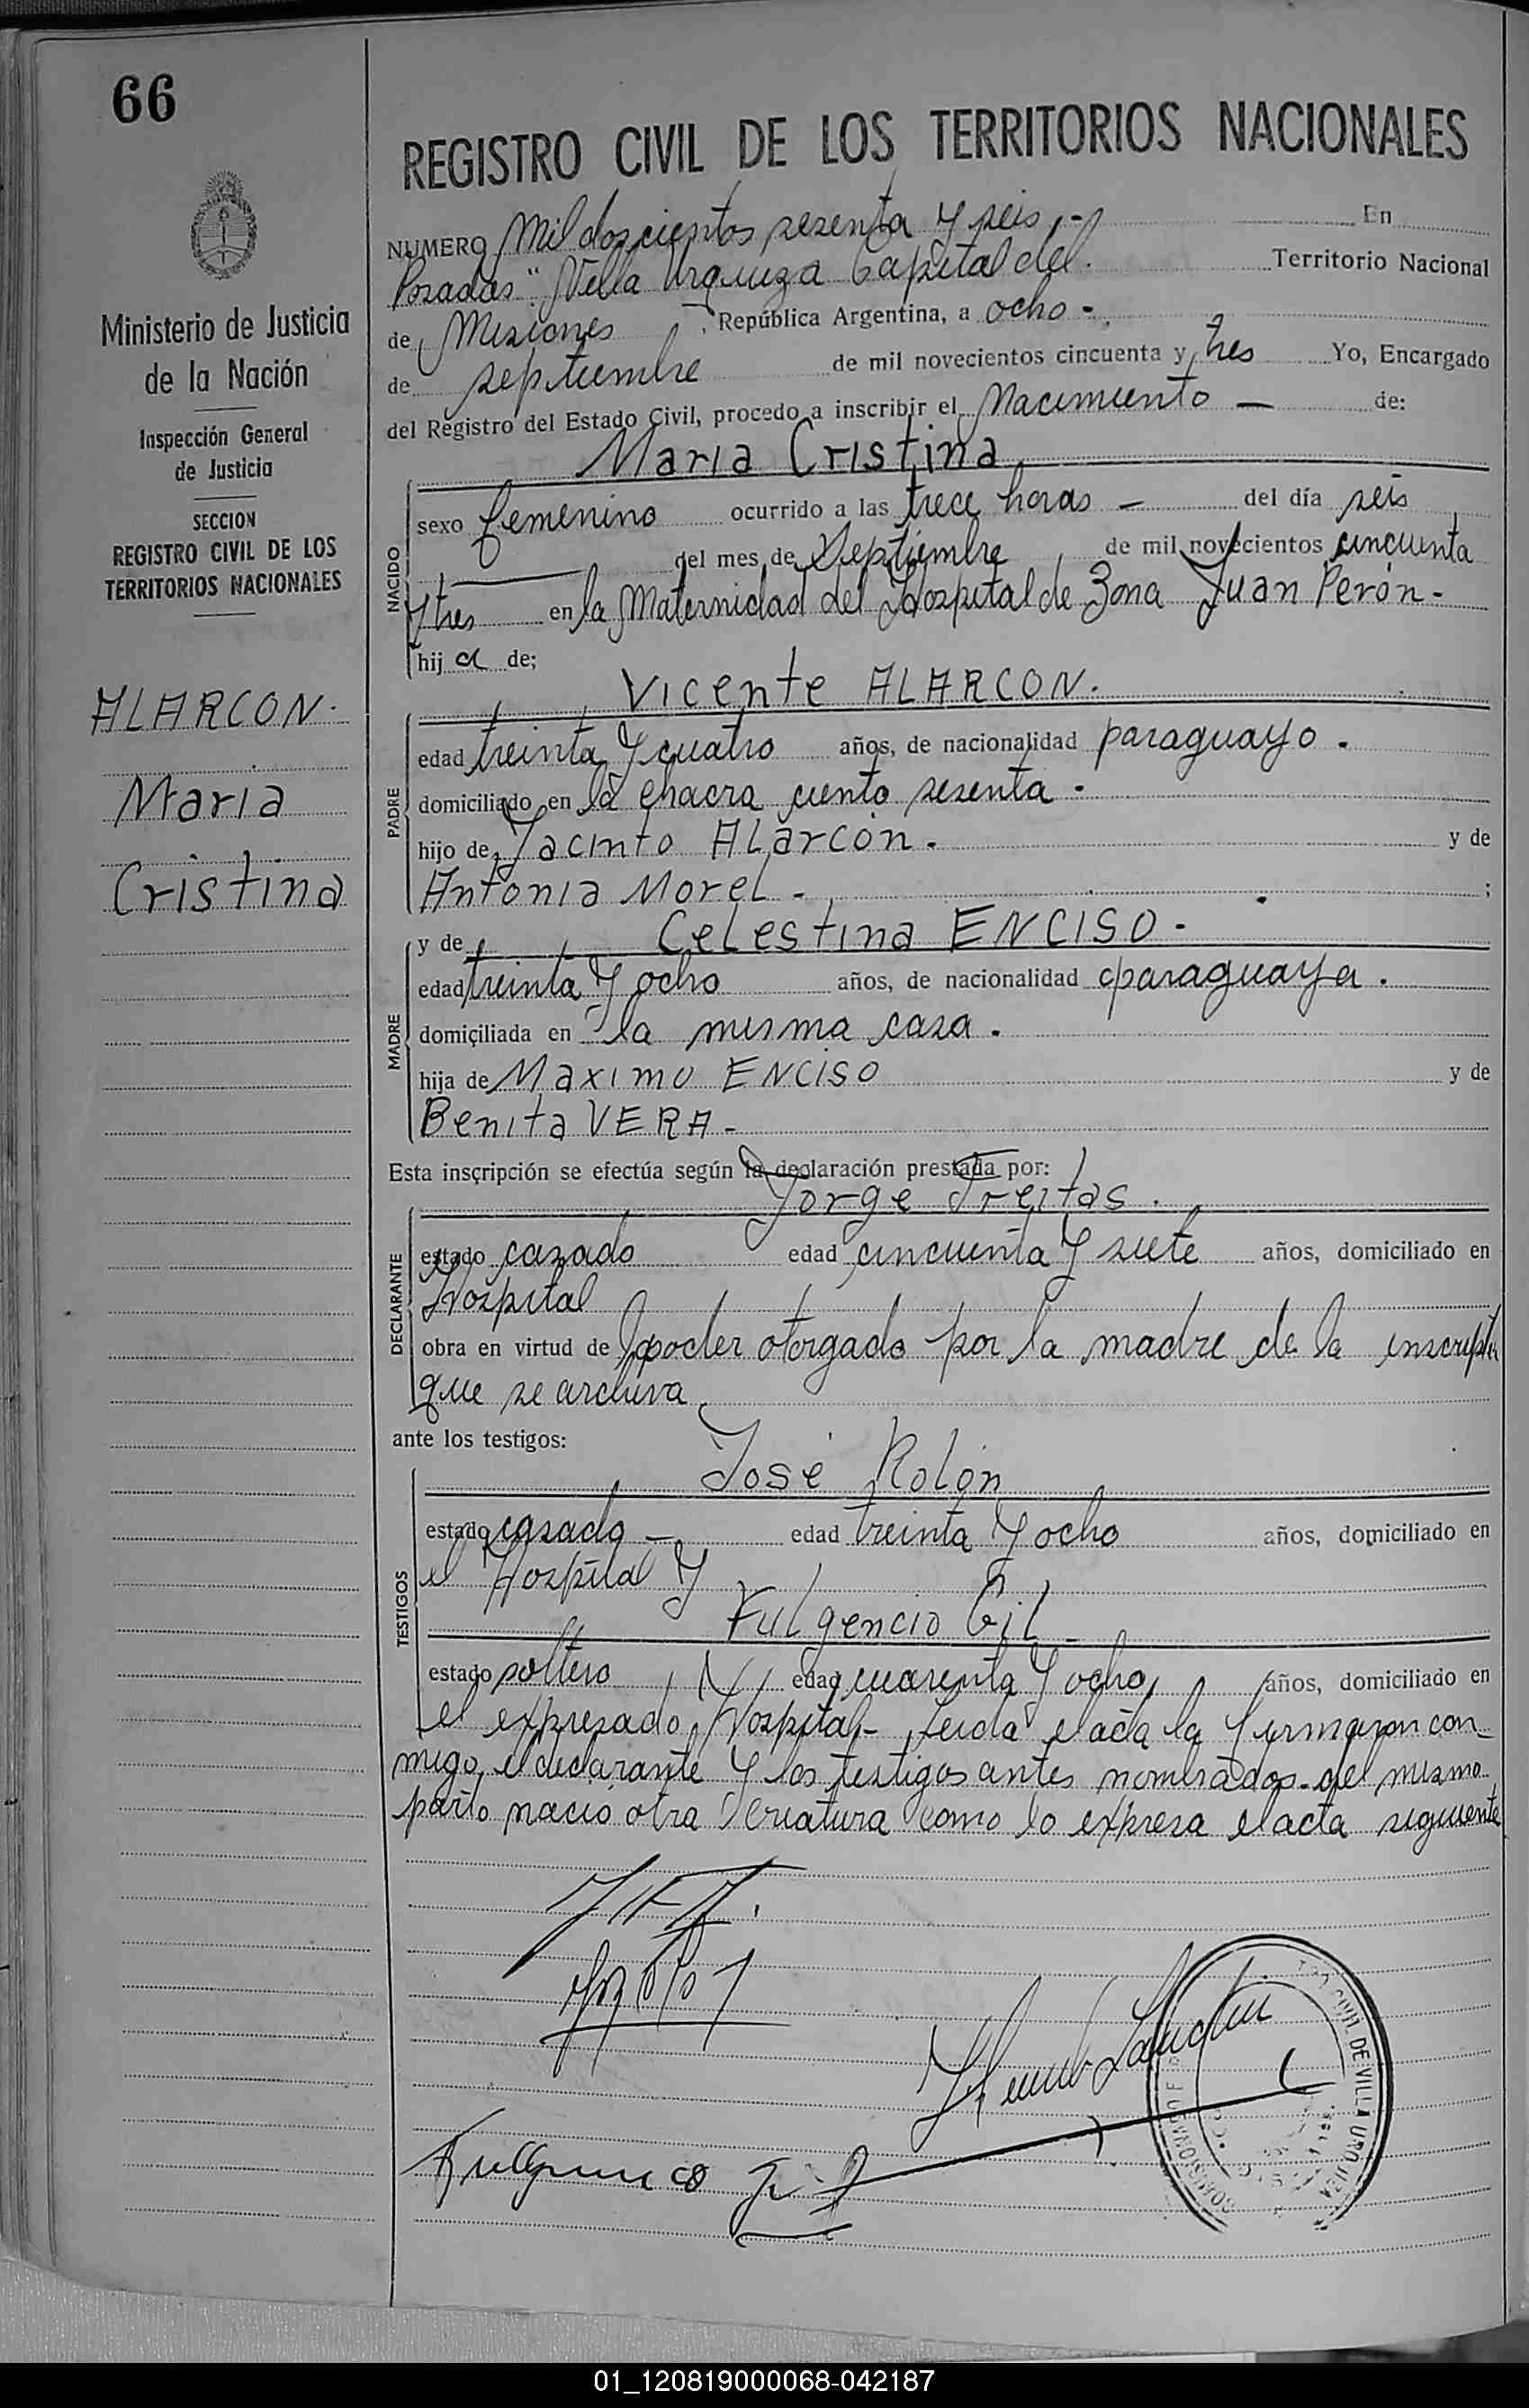 66
REGISTRO CIVIL DE LOS TERRITORIOS NACIONALES
Ministerio de Justicia
de la Nación
Inspección General
de Justicia
SECCION
REGISTRO CIVIL DE LOS
TERRITORIOS NACIONALES
ALARCON.
Maria
Cristina
NUMERO Mil doscientos sesenta y seis.- En
Posadas "Villa Urquiza Capital del. Territorio Nacional
de Misiones, República Argentina, a ocho -
de septiembre de mil novecientos cincuenta y tres Yo, Encargado
del Registro del Estado Civil, procedo a inscribir el Nacimiento — de:
Maria Cristina
NACIDO
sexo femenino ocurrido a las trece horas — del día seis
del mes de Septiembre de mil novecientos cincuenta
y tres en la Maternidad del Hospital de Zona Juan Perón-
hij a de;
Vicente ALARCON.
PADRE
edad treinta y cuatro años, de nacionalidad paraguayo.
domiciliado en la chacra ciento sesenta.
hijo de Jacinto Alarcón. y de
Antonia Morel - ;
MADRE
y de Celestina ENCISO-
edad treinta y ocho años, de nacionalidad paraguaya.
domiciliada en la misma casa.
hija de Maximo ENCISO y de
Benita VERA-
Esta inscripción se efectúa según la declaración prestada por:
Jorge Freitas.
DECLARANTE
estado casado edad cincuenta y siete años, domiciliado en
Hospital
obra en virtud de poder otorgado por la madre de la inscripta
que se archiva.
ante los testigos:
José Rolón
TESTIGOS
estado casado — edad treinta y ocho años, domiciliado en
el Hospital y
Fulgencio Gil
estado soltero edad cuarenta y ocho años, domiciliado en
el expresado Hospital- Leida el acta la firmaron con-
migo, el declarante y los testigos antes nombrados. del mismo
parto nació otra criatura como lo expresa el acta siguiente
Fulgencio Gil
CIVIL DE VILLA URQUIZA
01_120819000068-042187